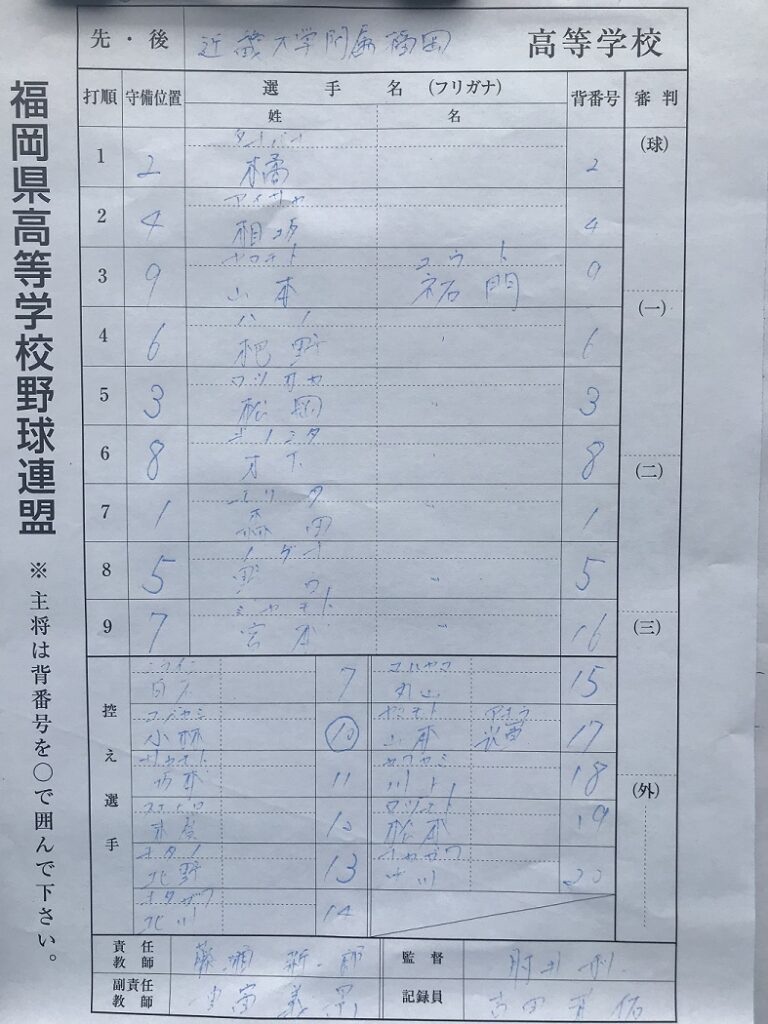 先・後 近畿大学附属福岡 高等学校
打順 守備位置 選手名(フリガナ) 背番号 審判
姓 名
(球)
タチバナ
1 2 橘 2
2 4 相坂 4
ヤマモト ユウト
3 9 山本 祐門 9
(一)
4 6 杷野 6
マツオカ
5 3 松岡 3
キノシタ
6 8 木下 8
(二)
モリタ
7 1 森田 1
ノグチ
8 5 野口 5
ミヤモト
9 7 宮本 16
(三)
控え選手
7 マルヤマ
丸山 15
コバヤシ ヤマモト
小林 10 山本 17
サカモト カワカミ
坂本 11 川上 18
スエヒロ マツモト
末廣 12 松本 19
キタノ ナカガワ
北野 13 中川 20
キタガワ
北川 14
(外)
責任教師 監督
副責任教師 記録員 吉田
福岡県高等学校野球連盟
※主将は背番号を○で囲んで下さい。